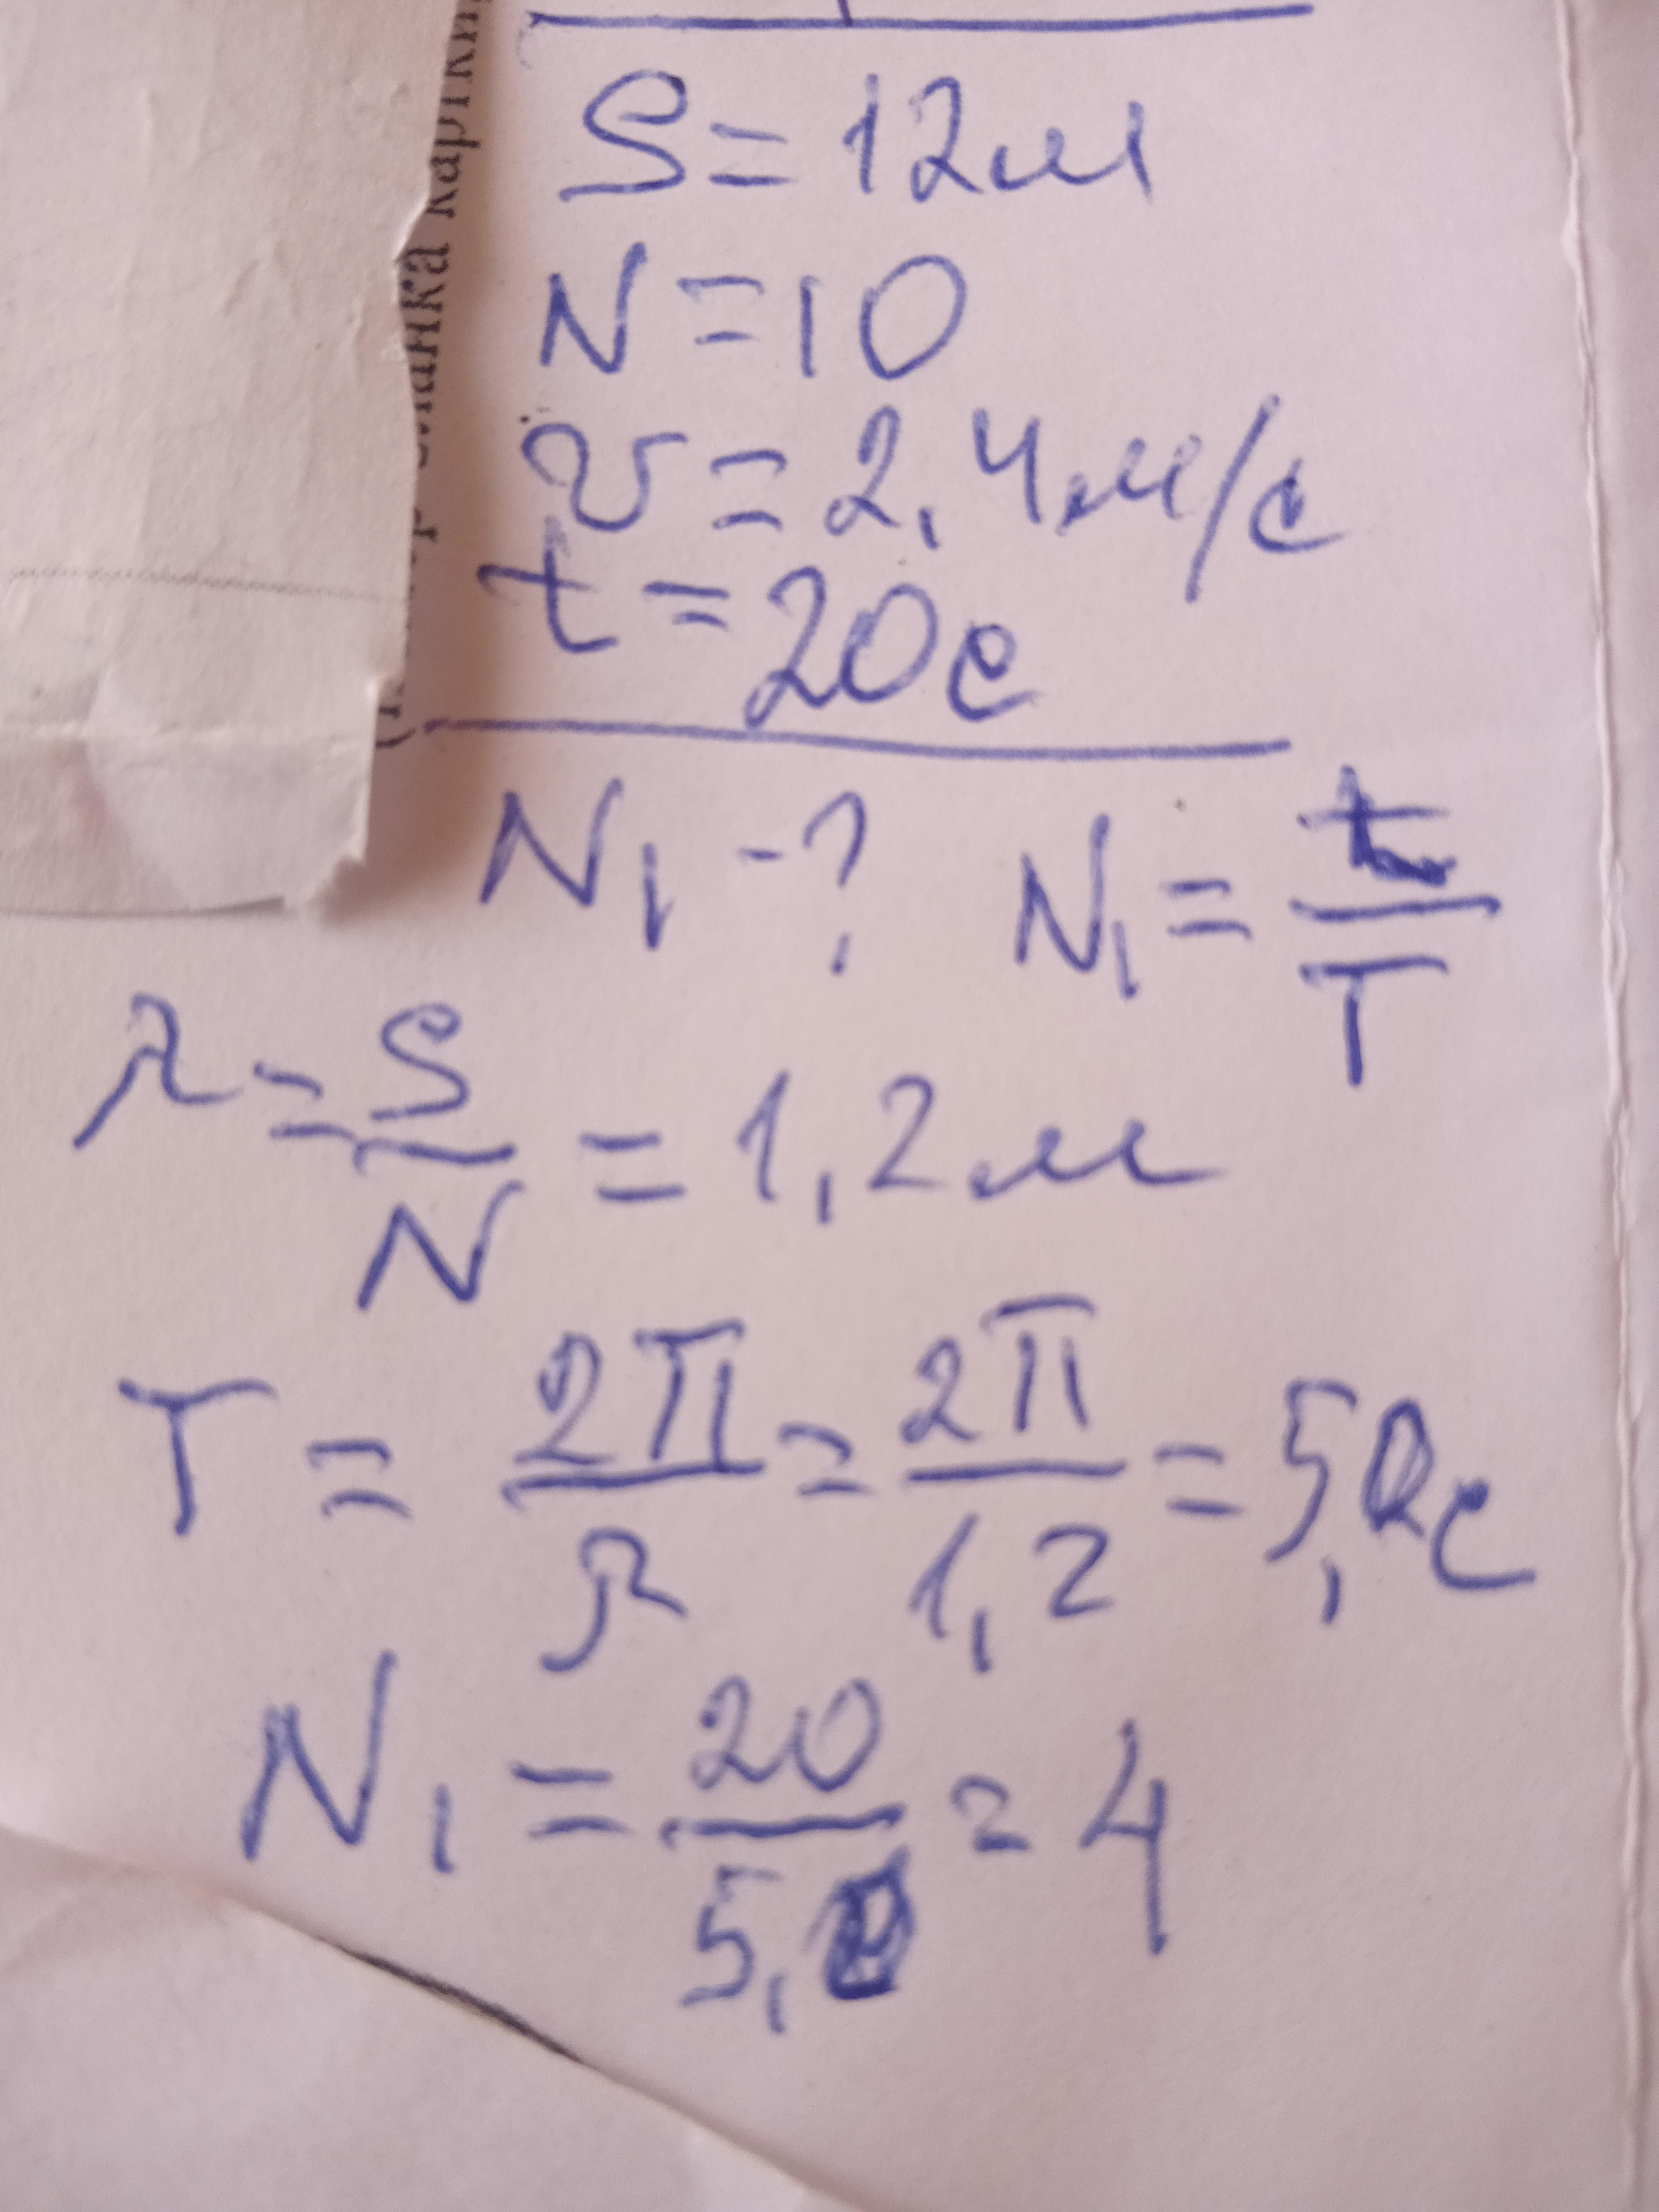 S = 12м
N = 10
v = 2,4м/с
t = 20с
N₁ - ? N₁ = t/T
λ = S/N = 1,2м
T = 2π/λ = 2π/1,2 = 5,2с
N₁ = 20/5, = 4